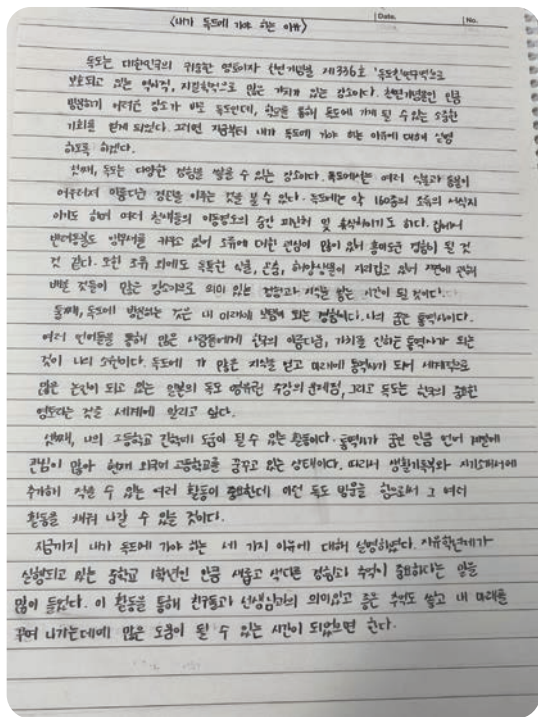 <내가 독도에 가야 하는 이유>
Date.
No.
독도는 대한민국의 귀중한 영토이자 천연기념물 제336호 '독도천연구역'으로
보호되고 있는 역사적, 지질학적으로 많은 가치가 있는 장소이다. 천연기념물인 만큼
방문하기 어려운 장소가 바로 독도인데, 학교를 통해 독도에 가게 될 수 있는 소중한
기회를 얻게 되었다. 그러면 지금부터 내가 독도에 가야 하는 이유에 대해 설명
하도록 하겠다.
첫째, 독도는 다양한 경험을 쌓을 수 있는 장소이다. 독도에서는 여러 식물과 동물이
어우러져 아름다운 경관을 이루는 것을 볼 수 있다. 독도에는 약 160종의 조류의 서식지
이기도 하며 여러 철새들의 이동경로의 중간 피난처 및 휴식처이기도 하다. 집에서
반려동물도 앵무새를 키우고 있어 조류에 대한 관심이 많이 있어 흥미로운 경험이 될 것
것 같다. 또한 조류 외에도 독특한 식물, 곤충, 해양생물이 자리잡고 있어 자연에 관해
배울 것들이 많은 장소이므로 의미 있는 경험과 지식을 쌓는 시간이 될 것이다.
둘째, 독도에 방문하는 것은 내 미래에 보탬이 되는 경험이다. 나의 꿈은 통역사이다.
여러 언어들을 통해 많은 사람들에게 한국의 아름다움, 가치를 전하는 통역사가 되는
것이 나의 소원이다. 독도에 가 많은 지식을 얻고 미래에 통역사가 되어 세계적으로
많은 논란이 되고 있는 일본의 독도 영유권 주장의 문제점, 그리고 독도는 한국의 중요한
영토라는 것을 세계에 알리고 싶다.
셋째, 나의 고등학교 진학에 도움이 될 수 있는 활동이다. 통역사가 꿈인 만큼 언어 계열에
관심이 많아 현재 외국어 고등학교를 꿈꾸고 있는 상태이다. 따라서 생활기록부와 자기소개서에
추가해 적을 수 있는 여러 활동이 중요한데 이런 독도 방문을 함으로써 그 여러
활동을 채워 나갈 수 있을 것이다.
지금까지 내가 독도에 가야 하는 세 가지 이유에 대해 설명하였다. 자유학년제가
실행되고 있는 중학교 1학년인 만큼 새롭고 색다른 경험과 추억이 중요하다는 말을
많이 들었다. 이 활동을 통해 친구들과 선생님과의 의미있고 좋은 추억도 쌓고 내 미래를
꾸며 나가는데에 많은 도움이 될 수 있는 시간이 되었으면 한다.